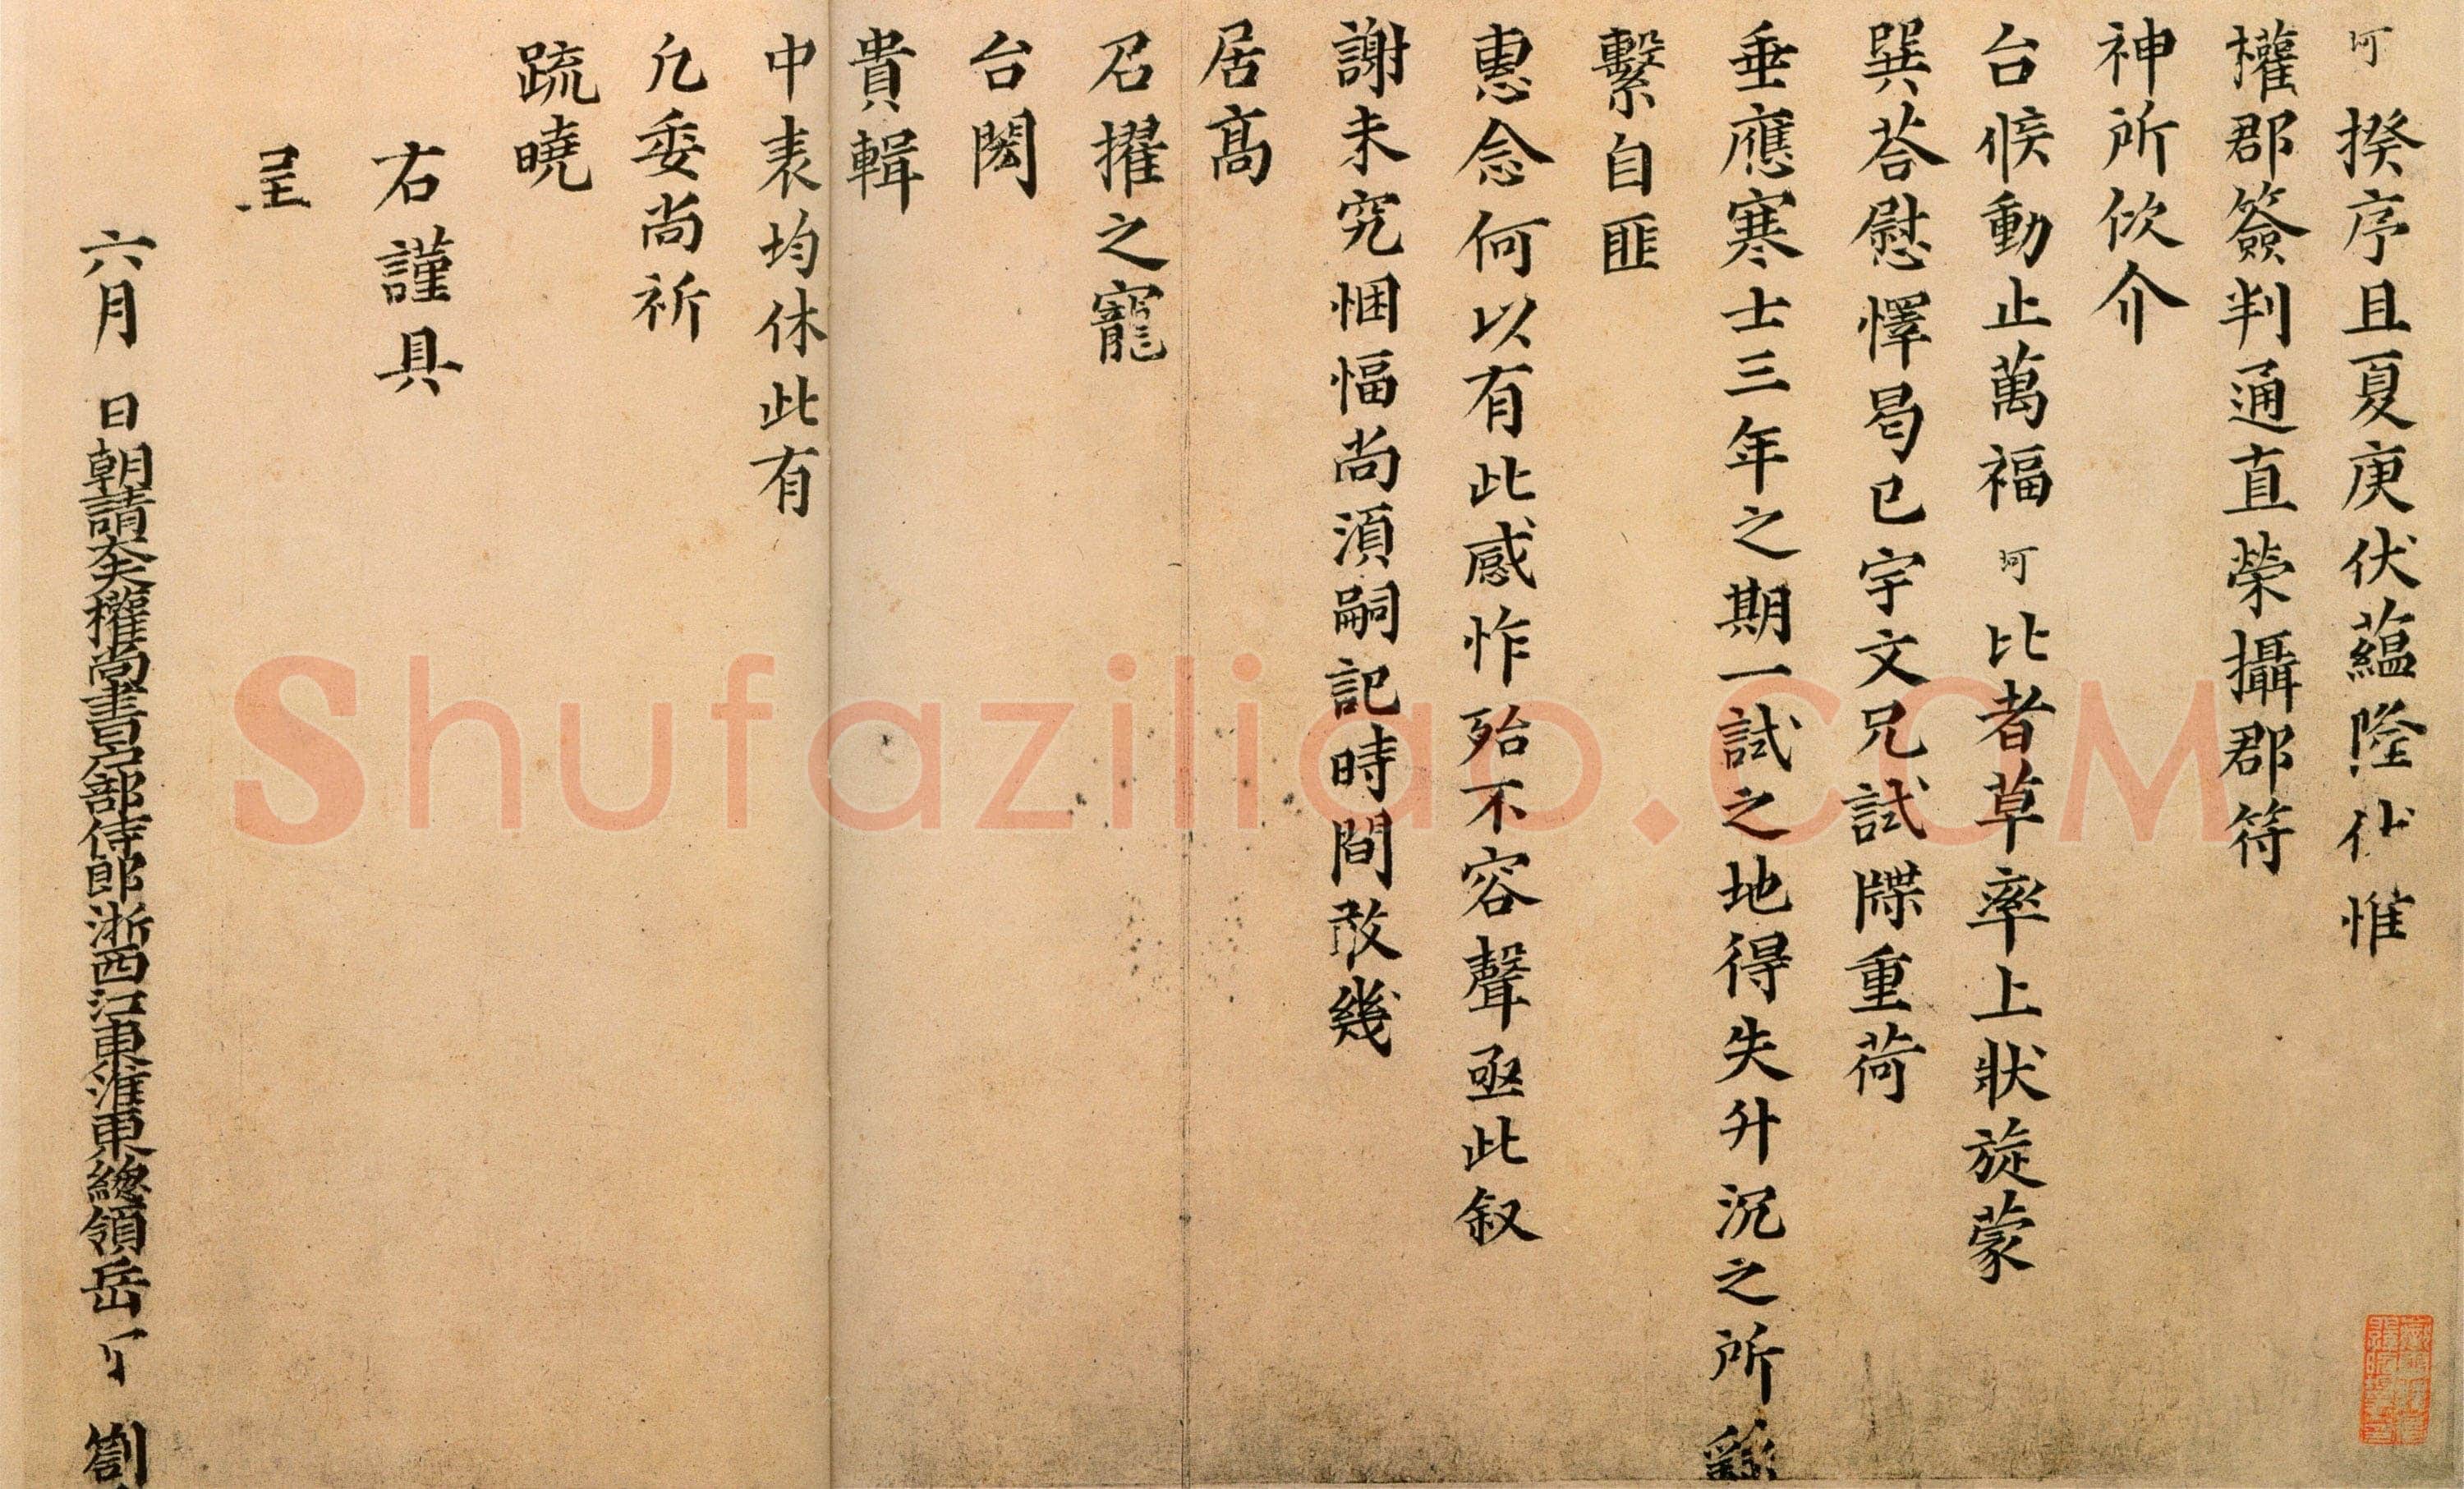 珂揆序且夏庚伏蘊隆伏惟
權郡簽判通直榮攝郡符
神所依介
台候動止萬福珂比者草率上狀旋蒙
巽荅慰懌曷已宇文兄試牒重荷
垂應寒士三年之期一試之地得失升沉之所繇
繫自匪
惠念何以有此感怍殆不容聲亟此叙
謝未究悃愊尚須嗣記時間敢幾
居髙
召擢之寵
台閎
貴輯
中表均休此有
凢委尚祈
䟽曉
右謹具
呈
六月 日朝請大夫權尚書户部侍郎浙西江東淮東總領岳珂劄
Shufaziliao.COM